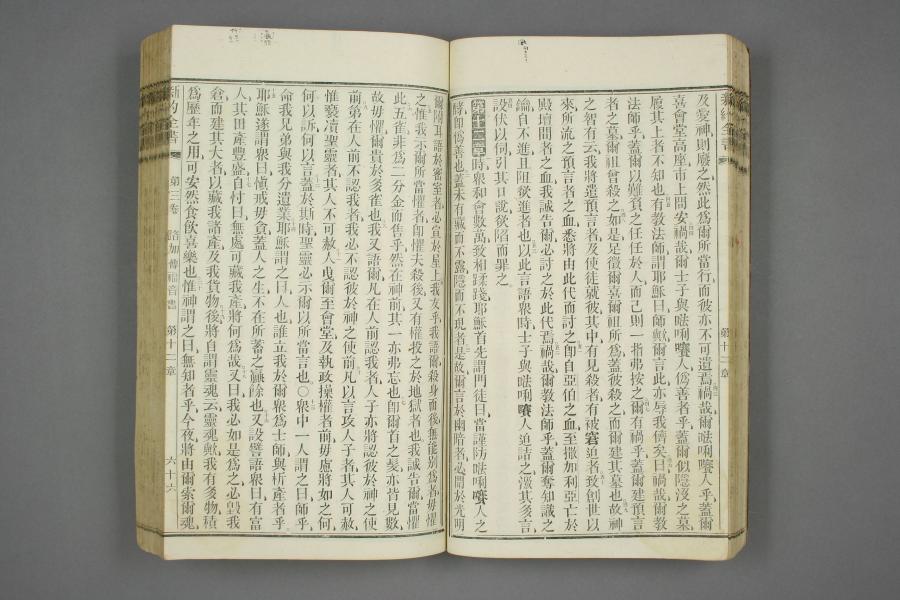 新約全書
第十一章
及愛神則廢之然此爲爾所當行而彼亦不可遺焉禍哉爾𠵽唎嚽人乎蓋爾
喜會堂高座市上問安禍哉爾士子與𠵽唎嚽人僞善者乎蓋爾似隱沒之墓
履其上者不知也有教法師謂耶穌曰師歟爾言此亦辱我儕矣曰禍哉爾教
法師乎蓋爾以難負之任任於人而己則一指弗按之爾有禍乎蓋爾建預言
者之墓爾祖曾殺之如是足徵爾喜爾祖所爲蓋彼殺之而爾建其墓也故神
之智有云我將遣預言者及使徒就彼其中有見殺者有被窘迫者致創世以
來所流之預言者之血悉將由此代而討之卽自亞伯之血至撒加利亞亡於
殿壇間者之血我誠告爾必討之於此代焉禍哉爾教法師乎蓋爾奪知識之
鑰自不進且阻欲進者也以此言語眾時士子與𠵽唎嚽人迫詰之激其多言
設伏以伺引其口說欲陷而罪之
第十二章時眾和會數萬致相蹂踐耶穌首先謂門徒曰當謹防𠵽唎嚽人之
酵卽僞善也蓋未有藏而不露隱而不現者是故爾言於幽暗者必聞於光明
爾附耳語於密室者必宣於屋上我友乎我語爾殺身而後無能別爲者毋懼
之惟我示爾所當懼者卽懼夫殺後又有權投之於地獄者也我誠告爾當懼
此五雀非爲二分金而售乎然在神前其一亦弗忘也卽爾首之髮亦皆見數
故毋懼爾貴於多雀也我又語爾凡在人前認我者人子亦將認彼於神之使
前第在人前不認我者我必不認彼於神之使前凡以言攻人子者其人可赦
惟褻瀆聖靈者其人不可赦人曳爾至會堂及執政操權者前毋慮將如之何
何以訴何以言蓋於斯時聖靈必示爾以所當言也○眾中一人謂之曰師乎
命我兄弟與我分遺業耶穌謂之曰人也誰立我於爾眾爲士師與析產者乎
耶穌遂謂眾曰愼戒毋貪蓋人之生不在所蓄之贏餘也又設譬語眾曰有富
人其田產豐盛自忖曰無處可藏我產將何爲哉又曰我必如是爲之必毀我
倉而建其大者以藏我諸產及我貨物後將自謂靈魂云靈魂歟我有多物積
爲歷年之用可安然食飲喜樂也惟神謂之曰無知者乎今夜將由爾索爾魂
新約全書
第三卷
路加傳福音書
第十二章
六十六